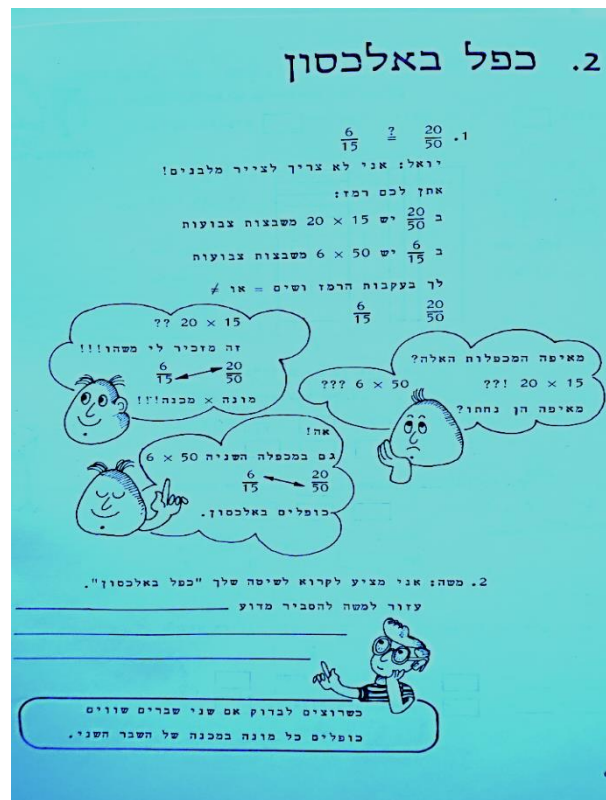 2. כפל באלכסון
1. 20/50 ? = 6/15
יואל: אני לא צריך לצייר מלבנים!
אתן לכם רמז:
ב 20/50 יש 15 × 20 משבצות צבועות
ב 6/15 יש 50 × 6 משבצות צבועות
לך בעקבות הרמז ושים = או ≠
20/50 6/15
מאיפה המכפלות האלה?
15 × 20 !?? 50 × 6 ???
מאיפה הן נחתו?
15 × 20 ??
זה מזכיר לי משהו!!!
20/50 ↔ 6/15
מונה × מכנה!?!
אה!
גם במכפלה השניה 50 × 6
20/50 ↔ 6/15
כופלים באלכסון.
2. משה: אני מציע לקרוא לשיטה שלך "כפל באלכסון".
עזור למשה להסביר מדוע
כשרוצים לבדוק אם שני שברים שווים
כופלים כל מונה במכנה של השבר השני.